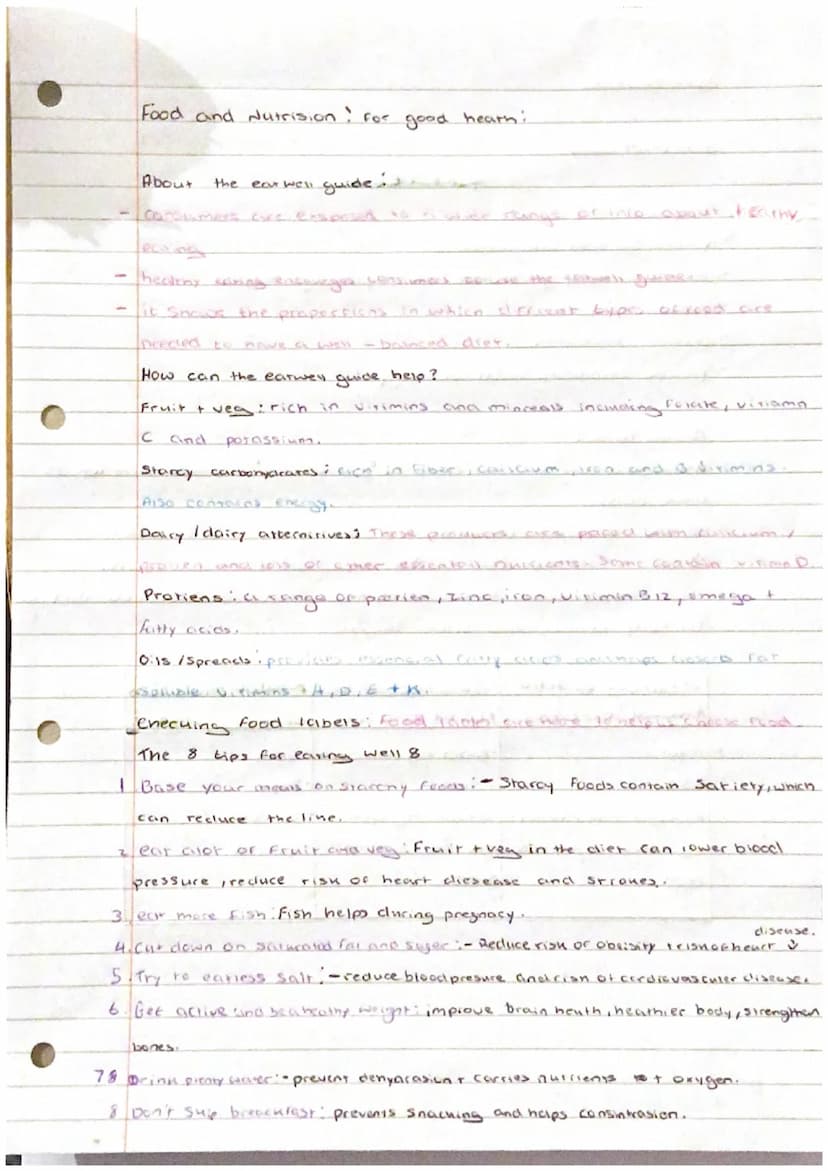 Food and Nutrision: For good hearth:
About the earwell guide:
- consumers are exposed to a wide range of info about healthy
eating
- healthy earing encourages consumers to use the earwell guide.
- it shows the proportions in which different types of food are
needed to have a well-balanced diet.
How can the earwell guide help?
Fruit + veg: rich in vitimins and minerals including Folate, vitiamn
C and potassium.
Starcy carbohydrates: rich in Fiber, calcium, iron and B vitimins.
Also contains energy.
Dairy/dairy alternitives: These products are paced with calcium,
protien and lots of other nutrients. Some contain vitimin D.
Protiens: a range of protien, zinc, iron, vitimin B12, omega +
fatty acids.
Oils/Spreads: provides essencial fatty acids for
soluble vitimins A, D, E + K.
Checking food labels: Food labels are here to help us choose food
The 8 tips for earing well 8
1 Base your meals on starchy foods: - Starcy Foods contain satiety, which
can reduce the line.
2 eat alot of Fruit and veg: Fruit + veg in the diet can lower blood
pressure, reduce risk of heart diesease and strokes.
3 eat more fish: Fish helps during pregnacy.
4. Cut down on saturated fat and suger: - Reduce risk of obisity + risk of heart disease.
5. Try to eat less salt: - reduce blood presure and risk of cardiovasculer disease.
6. Get active and be a heathy weight: improve brain heath, heathier body, strengthen
bones.
78 Drink plenty water: - prevent dehydration + carries nutrients + oxygen.
8 Don't skip breackfast: prevents snacking and helps consintrasion.